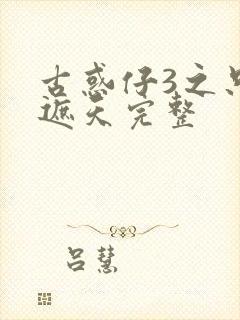 古惑仔3之只
遮天完整
吕慧